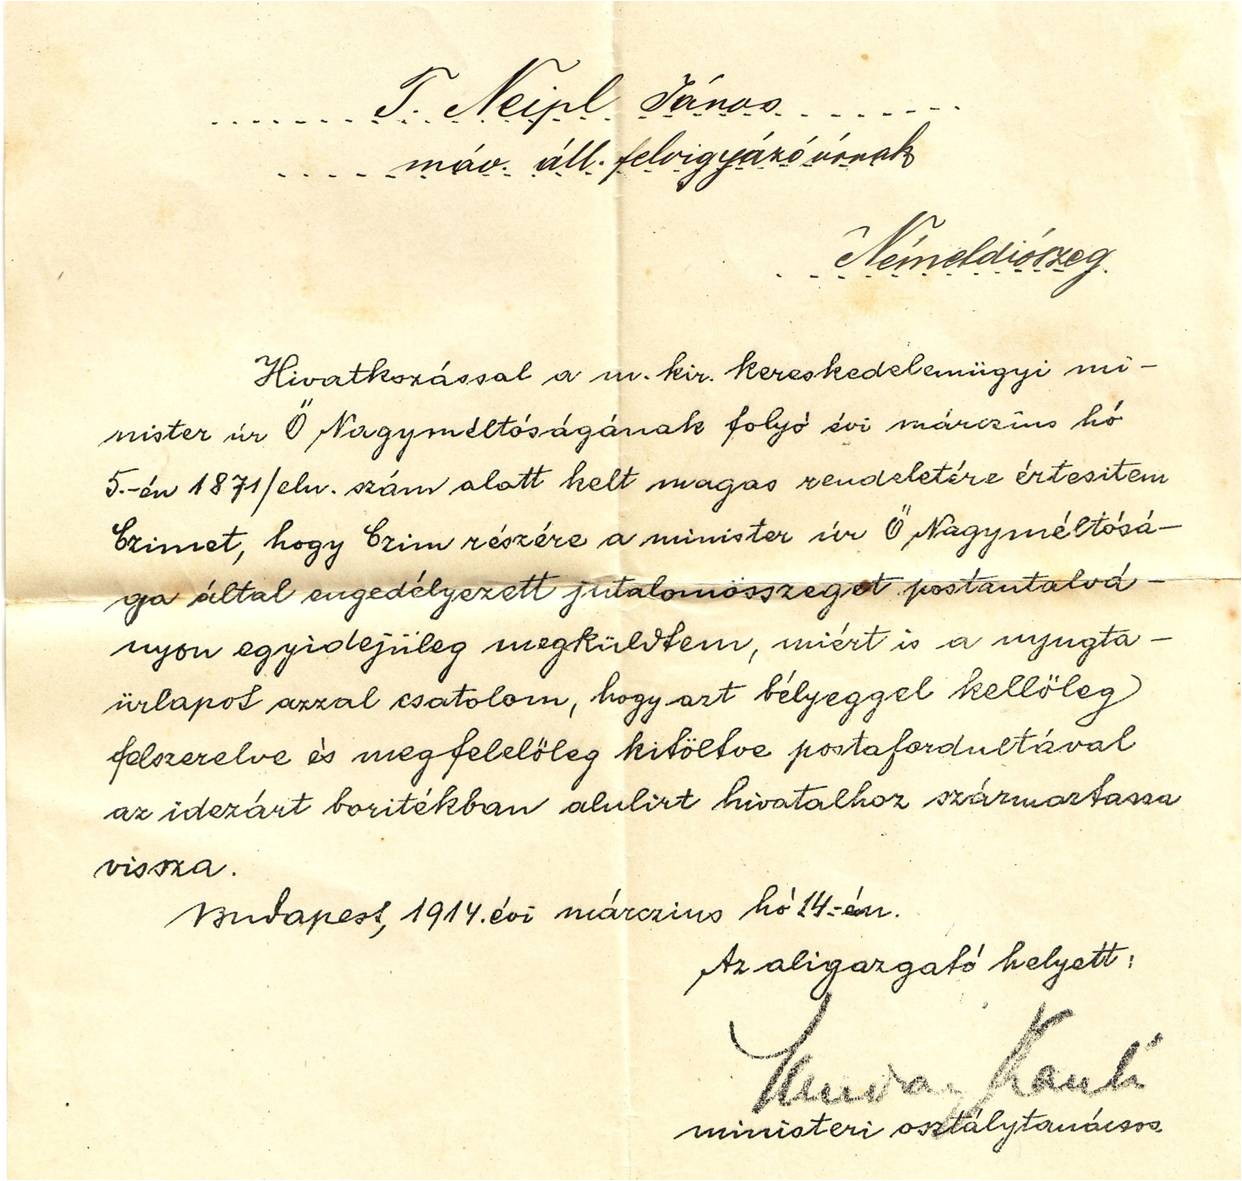 T. Neipl János
máv. áll. felvigyázó úrnak
Németdiószeg
Hivatkozással a m. kir. kereskedelemügyi mi-
nister úr Ő Nagyméltóságának folyó évi márczius hó
5.-én 1871/eln. szám alatt kelt magas rendeletére értesitem
Czimet, hogy Czim részére a minister úr Ő Nagyméltósá-
ga által engedélyezett jutalomösszeget postautalvá-
nyon egyidejüleg megküldtem, miért is a nyugta-
ürlapot azzal csatolom, hogy azt bélyeggel kellőleg
felszerelve és megfelelőleg kitöltve postafordultával
az idezárt boritékban alulirt hivatalhoz származtassa
vissza.
Budapest, 1914. évi márczius hó 14-én.
Az aligazgató helyett:
ministeri osztálytanácsos